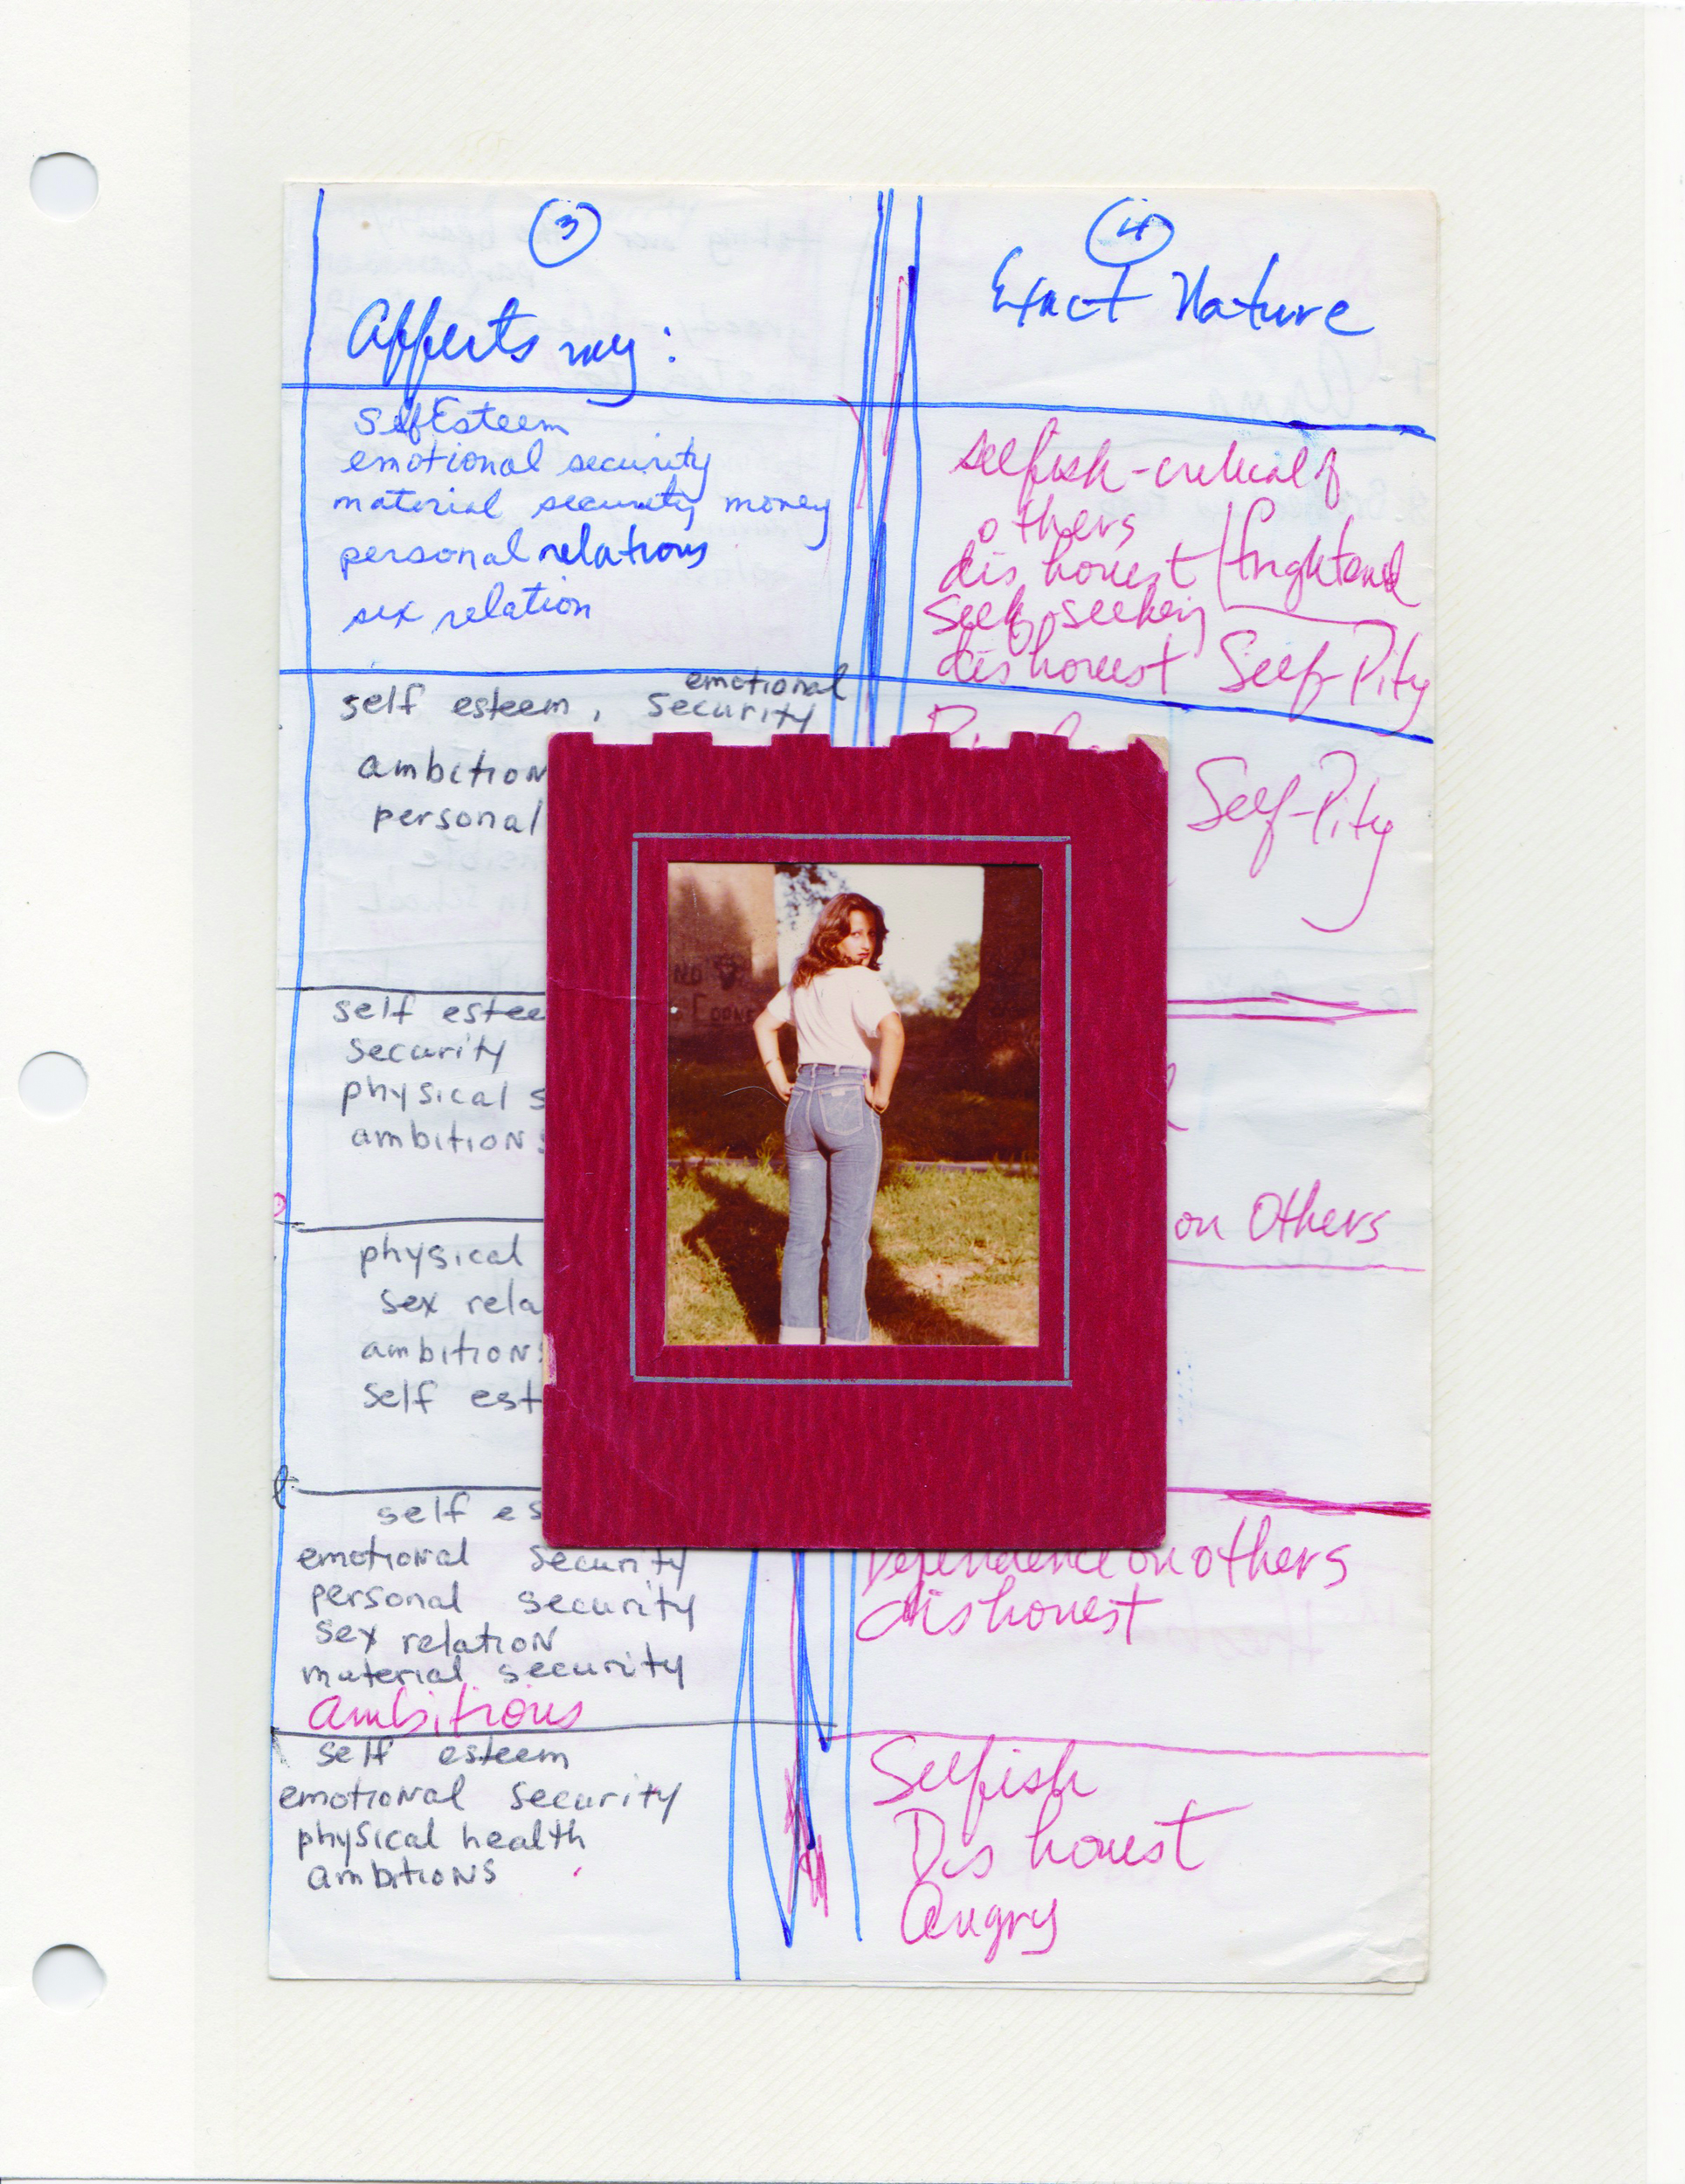 3
Affects my:
Self Esteem
emotional security
material security money
personal relations
sex relation
self esteem, emotional security
ambition
personal
self estee
security
physical s
ambitions
physical
sex rela
ambitions
self est
self es
emotional security
personal security
sex relation
material security
ambitions
self esteem
emotional security
physical health
ambitions
4
Exact Nature
selfish - critical of
others
dishonest frightened
Seek, seeking
dishonest Self-Pity
Self-Pity
on Others
Dependence on others
dishonest
Selfish
Dishonest
Angry
NO